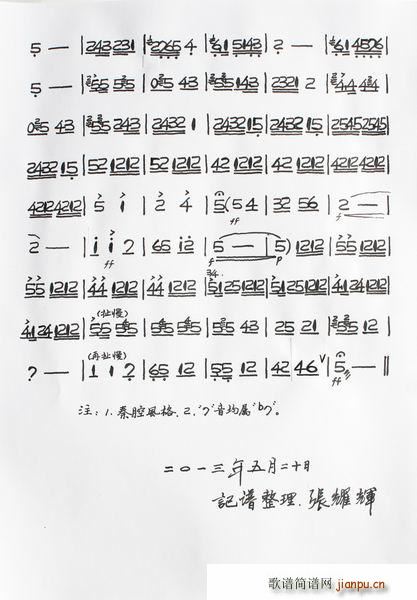 5 — | 243 231 | 2265 4 | 61 5143 | 2 — | 61 4526
5 — | 55 55 | 05 43 | 55 143 | 2321 2 | 44 44
05 43 | 55 243 | 2432 1 | 2432 15 | 2432 15 | 2545 2545
2432 15 | 52 1212 | 52 1212 | 42 1212 | 42 1212 | 4212 4212
4212 4212 | 5 i | 2 4 | 5 (5 4 | 32 56 | 2 —
ff f
2 — | i i 2 | 65 i2 | 5 — | 5) 1212 | 55 1212
ff f p
55 1212 | 44 1212 | 44 1212 | 51 25 1212 | 51 25 1212 | 41 24 1212
41 24 1212 | 55 55 | 55 55 | 55 43 | 25 21 | 55 12
(扯慢)
? — | 1 1 ? | 65 12 | 55 12 | 42 46 ∨ | 5 — ‖
(再扯慢)
ff
注：1.秦腔風格.2."7"音均属"b7"。
二〇一三年五月二十日
記谱整理.張耀輝
歌谱简谱网
jianpu.cn